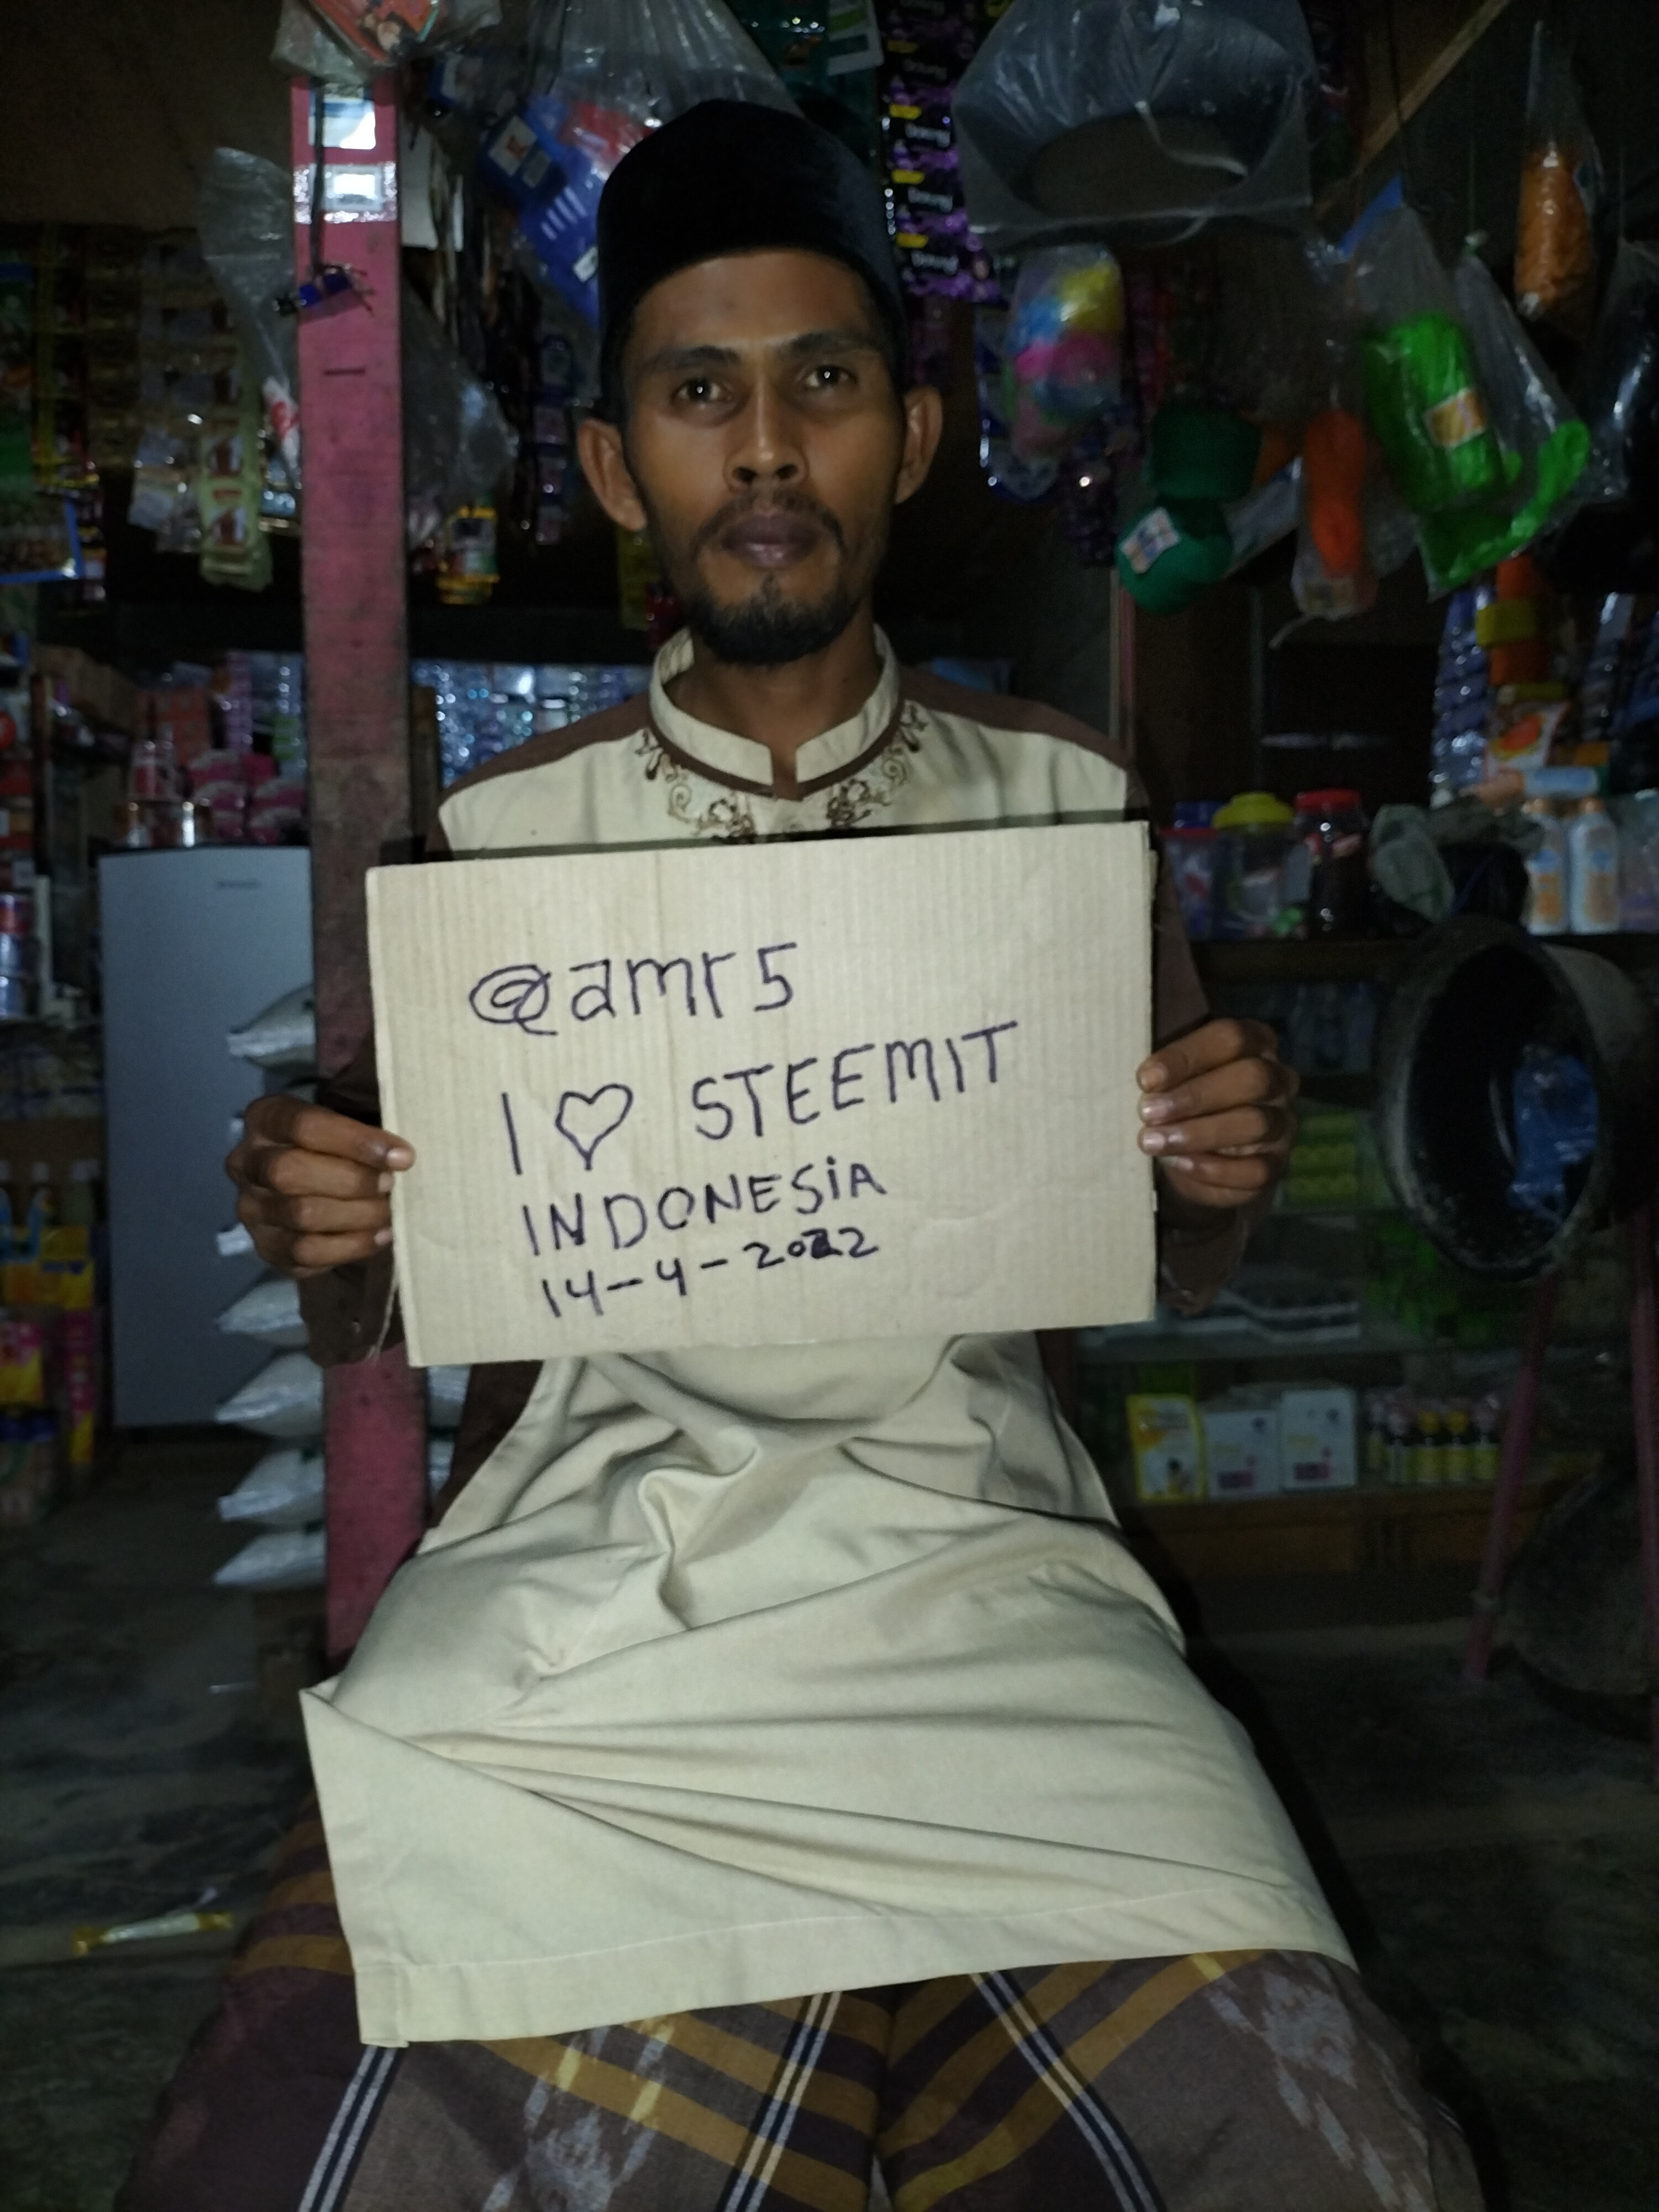 @amr5
I ♡ STEEMIT
INDONESiA
14-4-2022
Daung